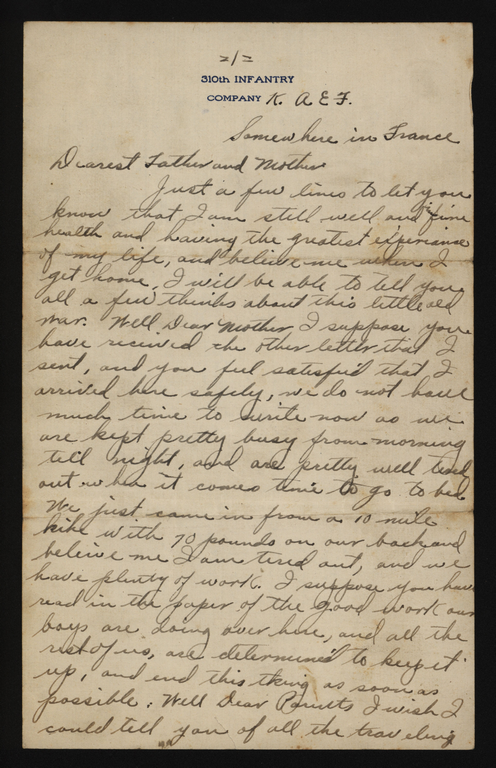 -1-
310th INFANTRY
COMPANY K. A E F.
Somewhere in France
Dearest Father and Mother
Just a few lines to let you
know that I am still well and in fine
health and having the greatest experiance
of my life, and believe me when I
get home, I will be able to tell you
all a few thinks about this little old
war. Well Dear Mother, I suppose you
have received the other letter that I
sent, and you feel satesfied that I
arrived here safely, we do not have
much time to write now as we
are kept pretty busy from morning
till night, and are pretty well tired
out when it comes time to go to bed
We just came in from a 10 mile
hike with 70 pounds on our back and
beleive me I am tired out, and we
have plenty of work. I suppose you have
read in the paper of the good work our
boys are doing over here, and all the
rest of us, are determined to keep it
up, and end this thing as soon as
possible. Well Dear Parents I wish I
could tell you of all the traveling